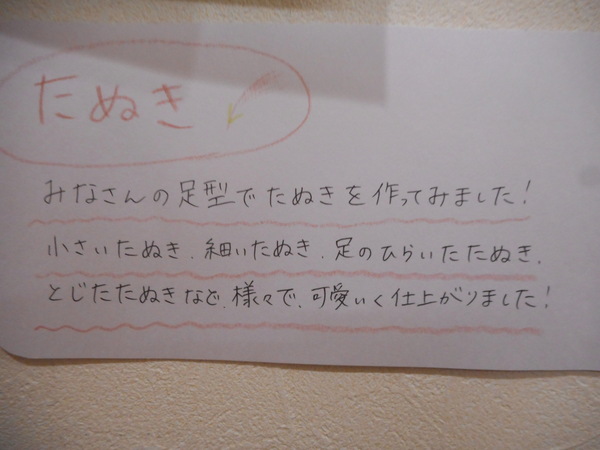 たぬき
みなさんの足型でたぬきを作ってみました!
小さいたぬき、細いたぬき、足のひらいたたぬき、
とじたたぬきなど、様々で、可愛いく仕上がりました!